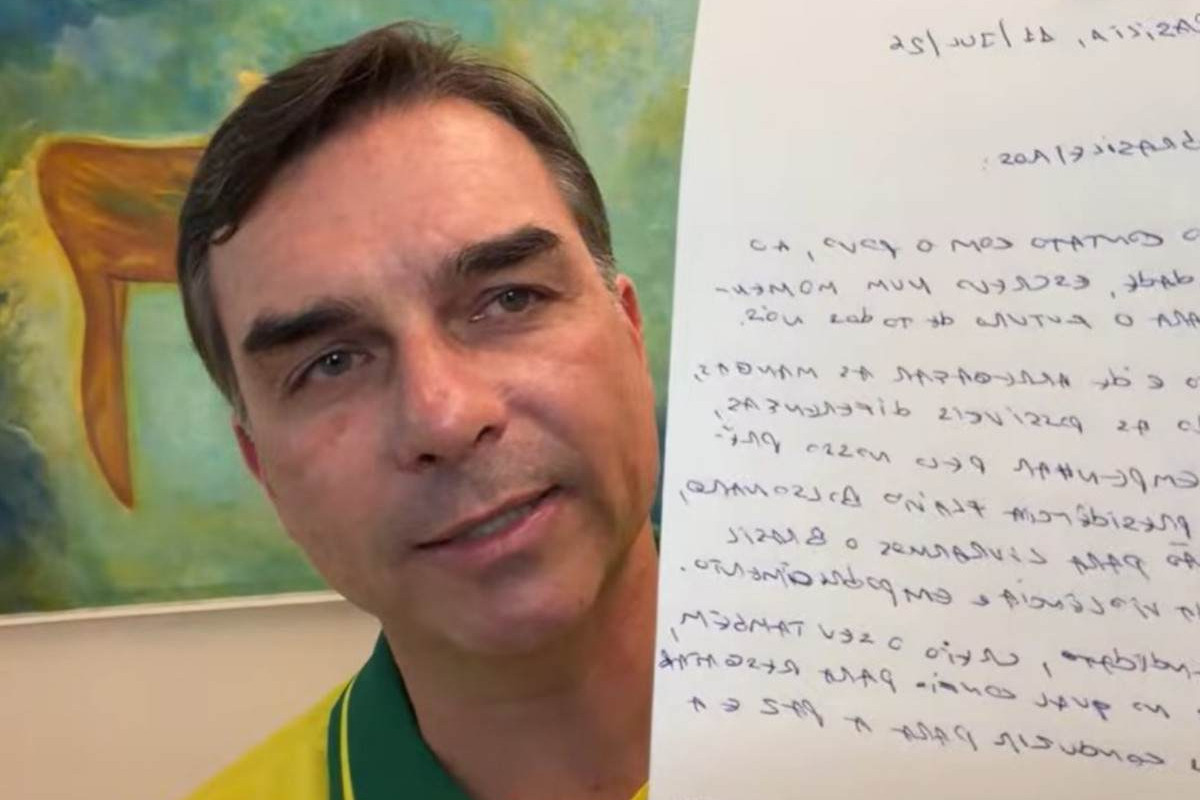 asília, 11/JUL/26
brasileiros:
o contato com o povo, ao
dade, escrevo num momen-
ara o futuro de todos nós.
o é de arregaçar as mangas,
do as possíveis diferenças,
empenhar pelo nosso pré-
presidência Flávio Bolsonaro,
ão para livrarmos o Brasil
a violência e empobrecimento.
creio o seu também,
no qual confio para resgatar
conduzir para a paz e a